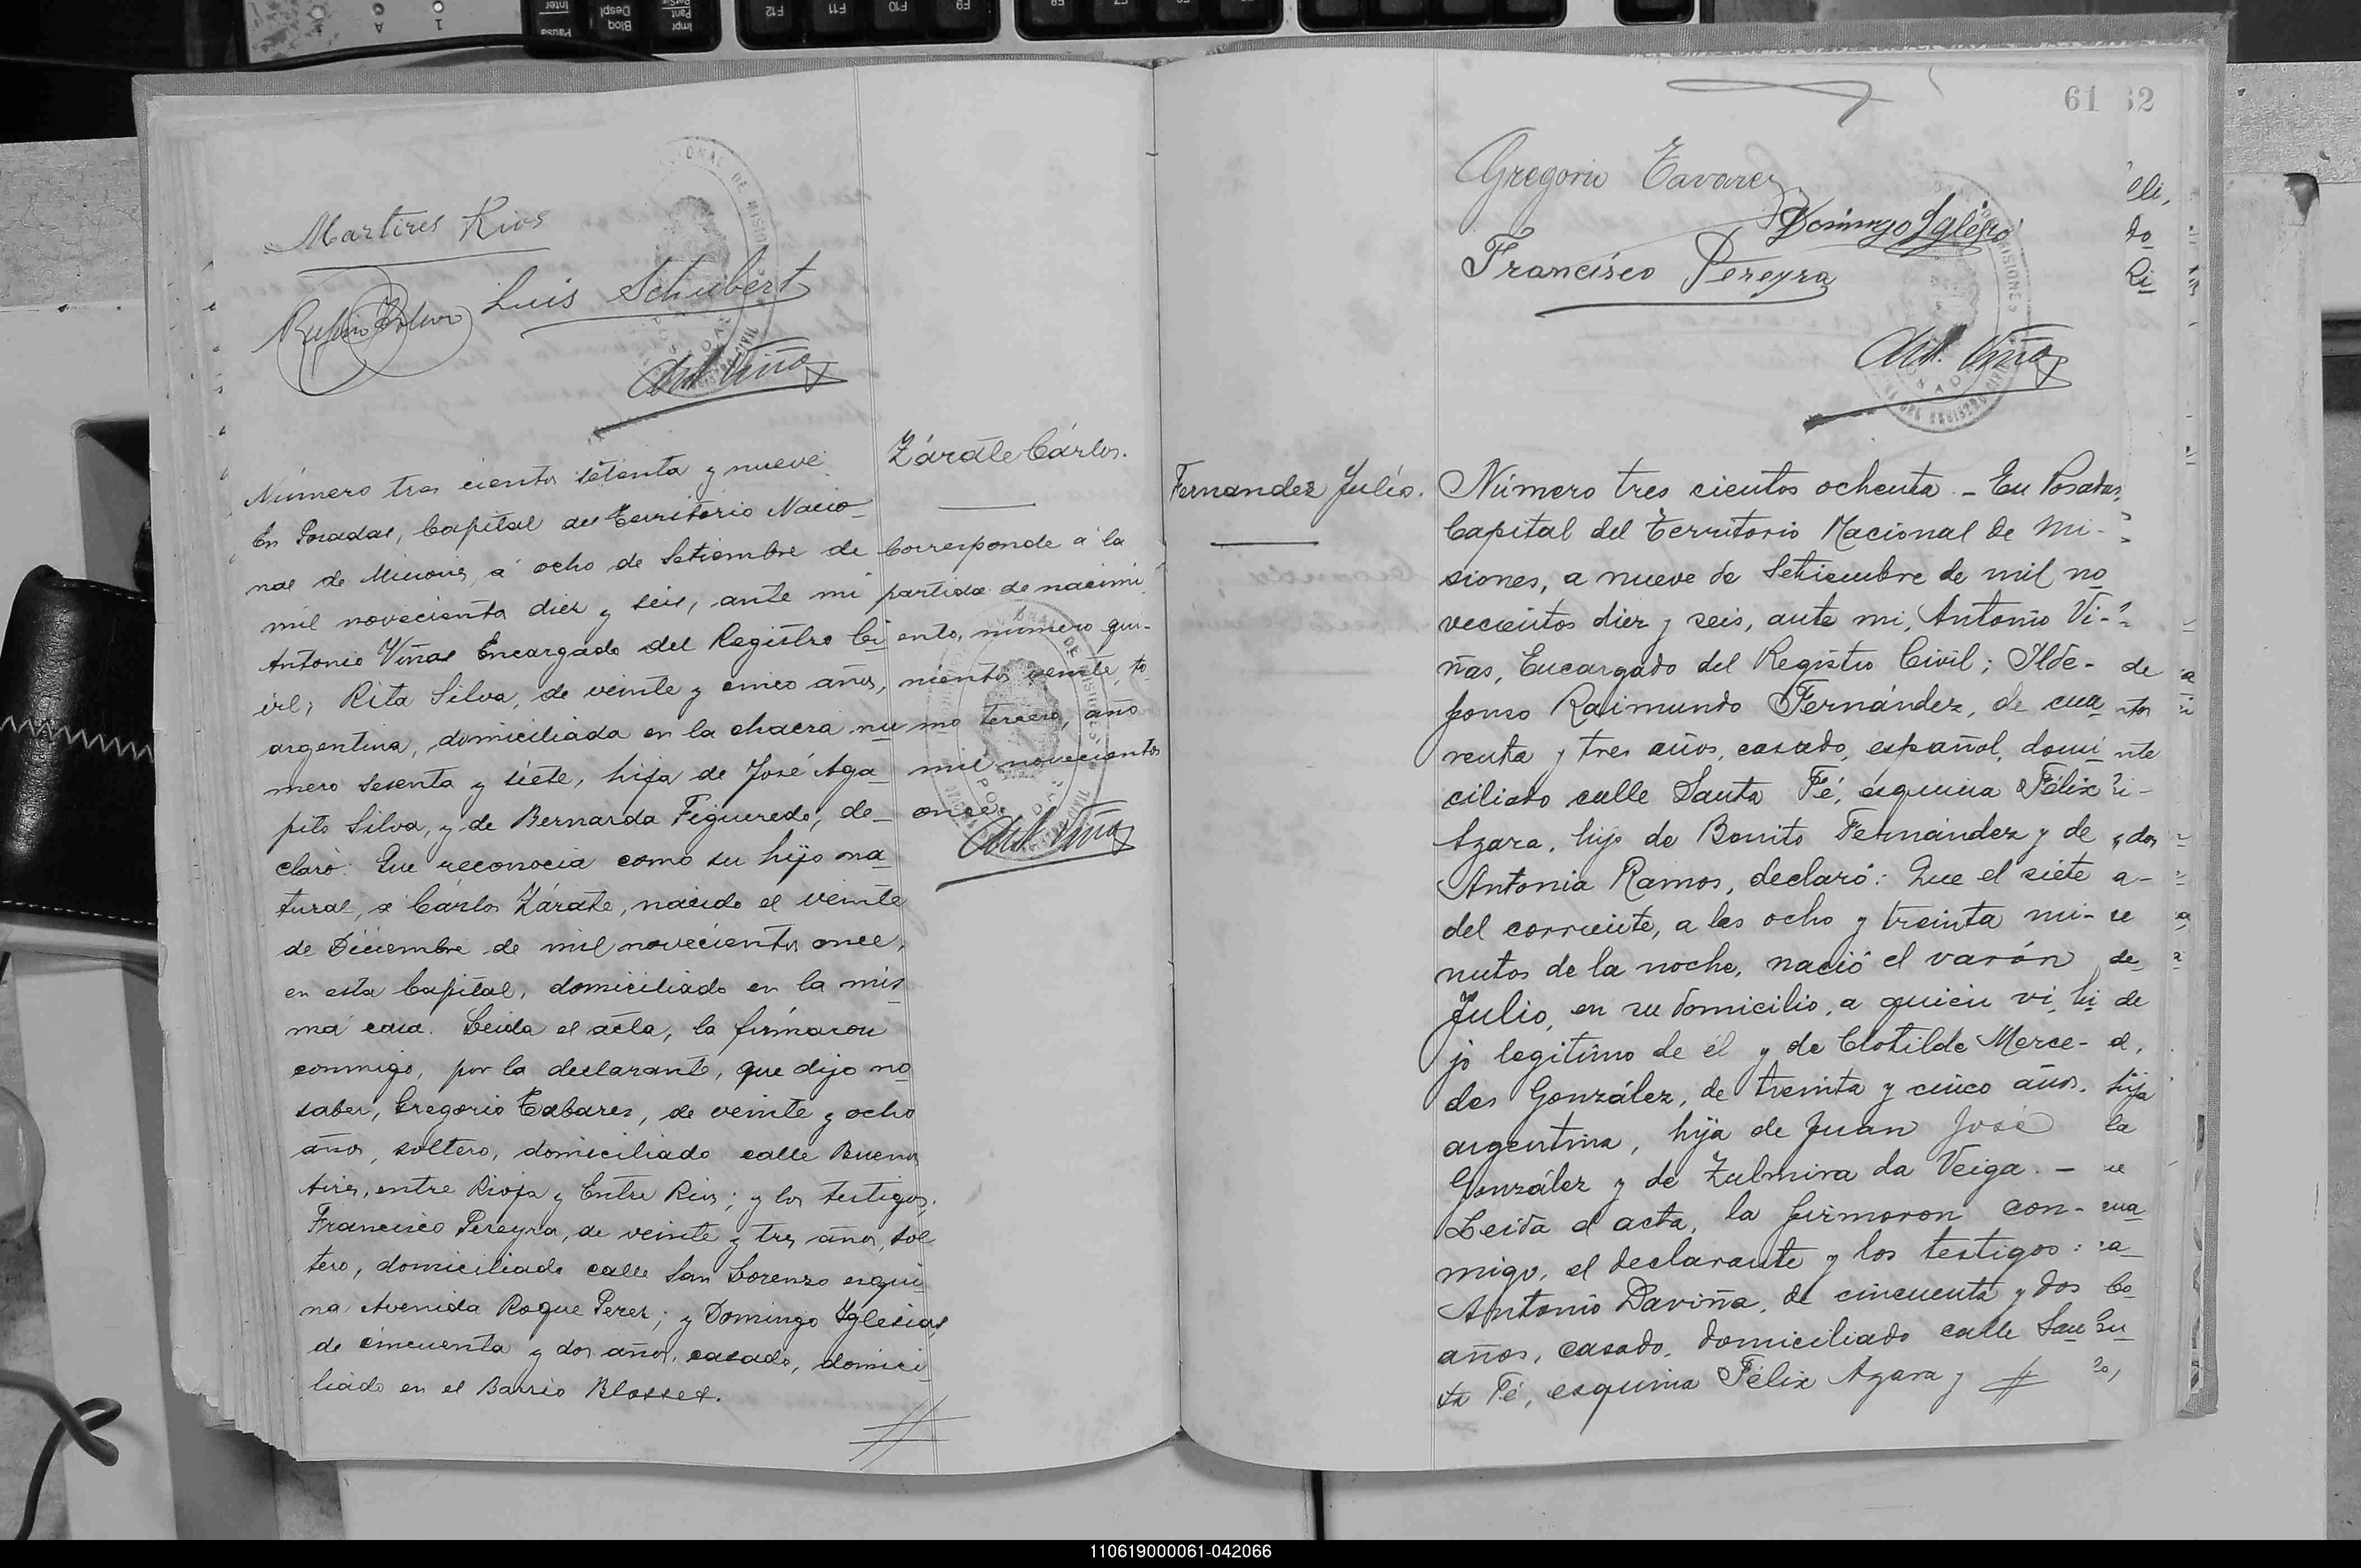 Martires Rios
Luis Schubert
Ant. Viñas
Número tres cientos setenta y nueve
En Posadas, Capital del Territorio Nacio-
nal de Misiones, a ocho de Setiembre de
mil novecientos diez y seis, ante mi
Antonio Viñas Encargado del Registro Ci
vil; Rita Silva, de veinte y cinco años,
argentina, domiciliada en la chacra nu
mero sesenta y siete, hija de José Aga
pito Silva, y de Bernarda Figueredo, de-
claró: Que reconocia como su hijo na
tural, a Cárlos Zárate, nacido el veinte
de Diciembre de mil novecientos once,
en esta Capital, domiciliado en la mis
ma casa. Leida el acta, la firmaron
conmigo, por la declarante, que dijo no
saber, Gregorio Tabares, de veinte y ocho
años, soltero, domiciliado calle Buenos
Aires, entre Rioja y Entre Rios; y los testigos.
Francisco Pereyra, de veinte y tres años, sol
tero, domiciliado calle San Lorenzo esqui
na Avenida Roque Perez; y Domingo Iglesias,
de cincuenta y dos años, casado, domici
liado en el Barrio Blosset.
Zárate Cárlos.
Corresponde á la
partida de nacimi
ento, número qui-
nientos veinte, to
mo tercero, año
mil novecientos
once.
Ant. Viñas
61 32
Gregorio Tavarez
Domingo Iglesias
Francisco Pereyra
Ant. Viñas
Fernandez Julio.
Número tres cientos ochenta. - En Posadas,
Capital del Territorio Nacional de Mi-
siones, a nueve de Setiembre de mil no
vecientos diez y seis, ante mi, Antonio Vi-
ñas, Encargado del Registro Civil; Ilde-
fonso Raimundo Fernández, de cua
renta y tres años, casado, español, domi
ciliado calle Santa Fé, esquina Félix
Azara, hijo de Benito Fernández y de
Antonia Ramos, declaró: Que el siete
del corriente, a las ocho y treinta mi-
nutos de la noche, nació el varón
Julio, en su domicilio, a quien vi, hi
jo legitimo de él y de Clotilde Merce-
des González, de treinta y cinco años,
argentina, hija de Juan José
González y de Zulmira da Veiga. -
Leida el acta, la firmaron con-
migo, el declarante y los testigos:
Antonio Daviña, de cincuenta y dos
años, casado, domiciliado calle San
ta Fé, esquina Félix Azara y
110619000061-042066